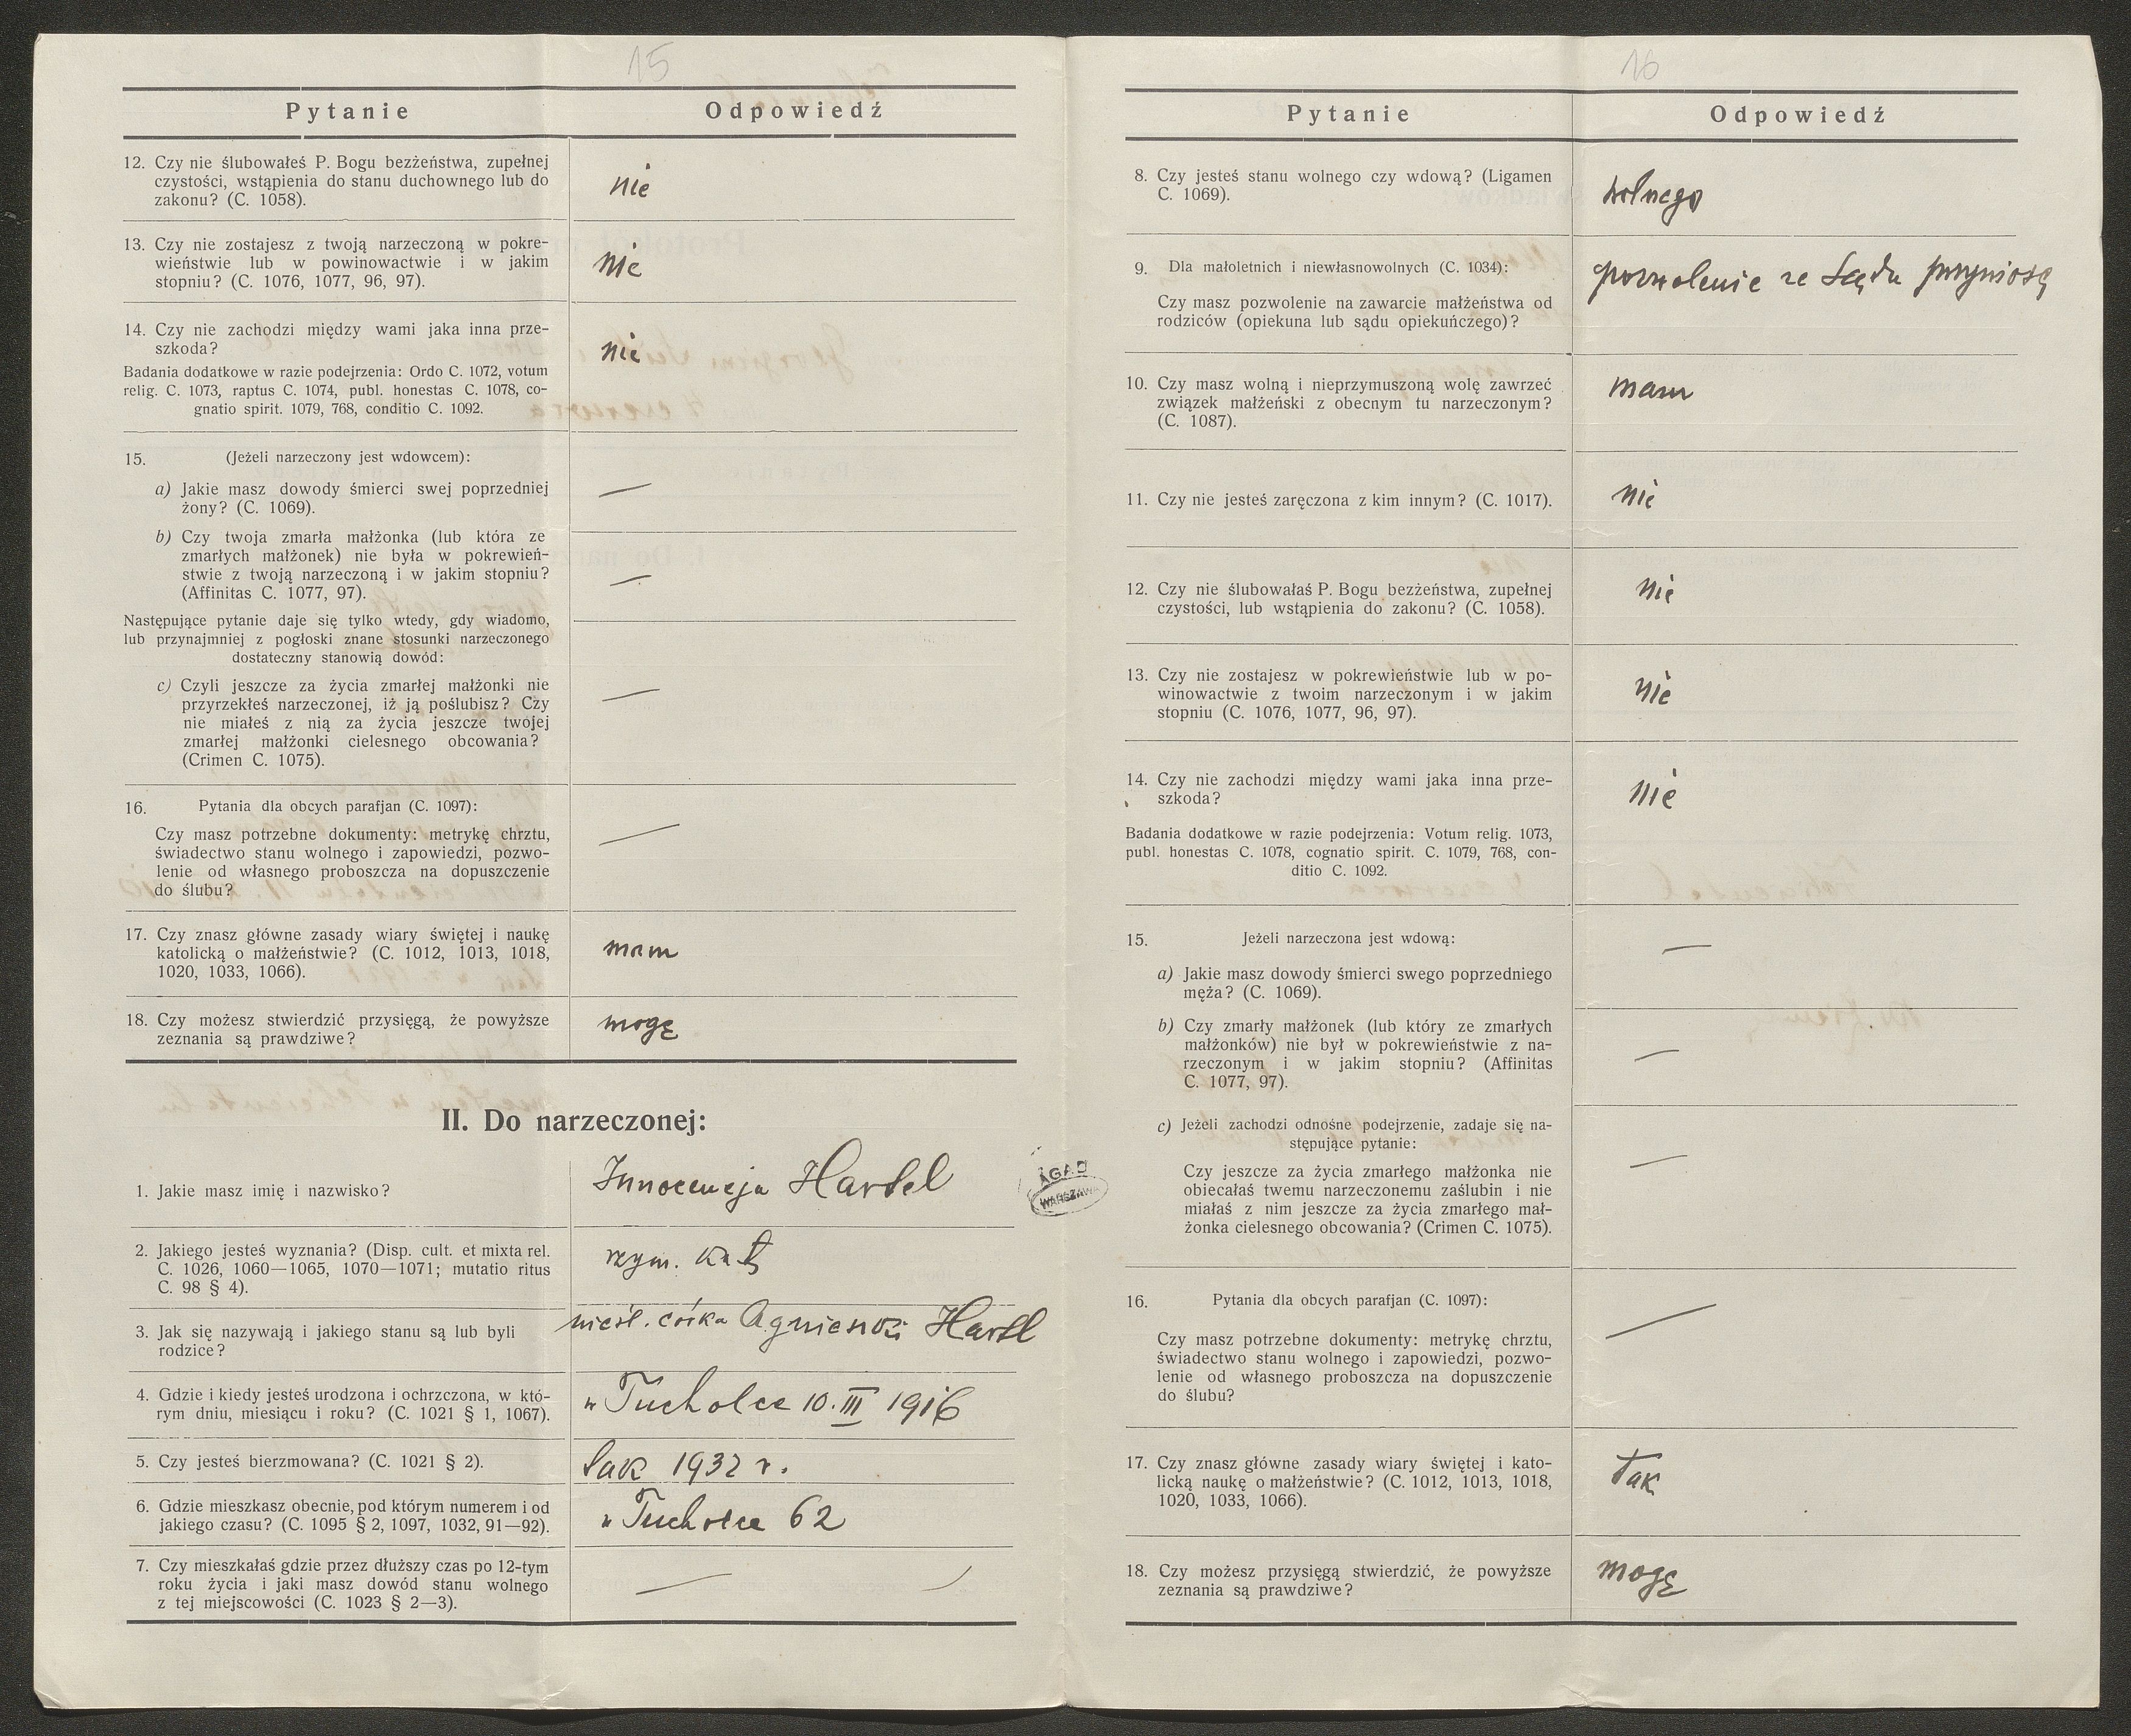 15
Pytanie
Odpowiedź
12. Czy nie ślubowałeś P. Bogu bezżeństwa, zupełnej
czystości, wstąpienia do stanu duchownego lub do
zakonu? (C. 1058).
nie
13. Czy nie zostajesz z twoją narzeczoną w pokre-
wieństwie lub w powinowactwie i w jakim
stopniu? (C. 1076, 1077, 96, 97).
nie
14. Czy nie zachodzi między wami jaka inna prze-
szkoda?
nie
Badania dodatkowe w razie podejrzenia: Ordo C. 1072, votum
relig. C. 1073, raptus C. 1074, publ. honestas C. 1078, co-
gnatio spirit. 1079, 768, conditio C. 1092.
15. (Jeżeli narzeczony jest wdowcem):
a) Jakie masz dowody śmierci swej poprzedniej
żony? (C. 1069).
—
b) Czy twoja zmarła małżonka (lub która ze
zmarłych małżonek) nie była w pokrewień-
stwie z twoją narzeczoną i w jakim stopniu?
(Affinitas C. 1077, 97).
—
Następujące pytanie daje się tylko wtedy, gdy wiadomo,
lub przynajmniej z pogłoski znane stosunki narzeczonego
dostateczny stanowią dowód:
c) Czyli jeszcze za życia zmarłej małżonki nie
przyrzekłeś narzeczonej, iż ją poślubisz? Czy
nie miałeś z nią za życia jeszcze twojej
zmarłej małżonki cielesnego obcowania?
(Crimen C. 1075).
—
16. Pytania dla obcych parafjan (C. 1097):
Czy masz potrzebne dokumenty: metrykę chrztu,
świadectwo stanu wolnego i zapowiedzi, pozwo-
lenie od własnego proboszcza na dopuszczenie
do ślubu?
—
17. Czy znasz główne zasady wiary świętej i naukę
katolicką o małżeństwie? (C. 1012, 1013, 1018,
1020, 1033, 1066).
mam
18. Czy możesz stwierdzić przysięgą, że powyższe
zeznania są prawdziwe?
mogę
II. Do narzeczonej:
1. Jakie masz imię i nazwisko?
Innocencja Hartel
2. Jakiego jesteś wyznania? (Disp. cult. et mixta rel.
C. 1026, 1060—1065, 1070—1071; mutatio ritus
C. 98 § 4).
rzym. kat
3. Jak się nazywają i jakiego stanu są lub byli
rodzice?
nieśl. córka Agnieszki Hartl
4. Gdzie i kiedy jesteś urodzona i ochrzczona, w któ-
rym dniu, miesiącu i roku? (C. 1021 § 1, 1067).
w Tucholce 10. III 1916
5. Czy jesteś bierzmowana? (C. 1021 § 2).
tak 1932 r.
6. Gdzie mieszkasz obecnie, pod którym numerem i od
jakiego czasu? (C. 1095 § 2, 1097, 1032, 91—92).
w Tucholce 62
7. Czy mieszkałaś gdzie przez dłuższy czas po 12-tym
roku życia i jaki masz dowód stanu wolnego
z tej miejscowości (C. 1023 § 2—3).
—
AGAD
WARSZAWA
16
Pytanie
Odpowiedź
8. Czy jesteś stanu wolnego czy wdową? (Ligamen
C. 1069).
wolnego
9. Dla małoletnich i niewłasnowolnych (C. 1034):
Czy masz pozwolenie na zawarcie małżeństwa od
rodziców (opiekuna lub sądu opiekuńczego)?
pozwolenie ze Sądu przyniosę
10. Czy masz wolną i nieprzymuszoną wolę zawrzeć
związek małżeński z obecnym tu narzeczonym?
(C. 1087).
mam
11. Czy nie jesteś zaręczona z kim innym? (C. 1017).
nie
12. Czy nie ślubowałaś P. Bogu bezżeństwa, zupełnej
czystości, lub wstąpienia do zakonu? (C. 1058).
nie
13. Czy nie zostajesz w pokrewieństwie lub w po-
winowactwie z twoim narzeczonym i w jakim
stopniu (C. 1076, 1077, 96, 97).
nie
14. Czy nie zachodzi między wami jaka inna prze-
szkoda?
nie
Badania dodatkowe w razie podejrzenia: Votum relig. 1073,
publ. honestas C. 1078, cognatio spirit. C. 1079, 768, con-
ditio C. 1092.
15. Jeżeli narzeczona jest wdową:
a) Jakie masz dowody śmierci swego poprzedniego
męża? (C. 1069).
—
b) Czy zmarły małżonek (lub który ze zmarłych
małżonków) nie był w pokrewieństwie z na-
rzeczonym i w jakim stopniu? (Affinitas
C. 1077, 97).
—
c) Jeżeli zachodzi odnośne podejrzenie, zadaje się na-
stępujące pytanie:
Czy jeszcze za życia zmarłego małżonka nie
obiecałaś twemu narzeczonemu zaślubin i nie
miałaś z nim jeszcze za życia zmarłego mał-
żonka cielesnego obcowania? (Crimen C. 1075).
—
16. Pytania dla obcych parafjan (C. 1097):
Czy masz potrzebne dokumenty: metrykę chrztu,
świadectwo stanu wolnego i zapowiedzi, pozwo-
lenie od własnego proboszcza na dopuszczenie
do ślubu?
—
17. Czy znasz główne zasady wiary świętej i kato-
licką naukę o małżeństwie? (C. 1012, 1013, 1018,
1020, 1033, 1066).
tak
18. Czy możesz przysięgą stwierdzić, że powyższe
zeznania są prawdziwe?
mogę